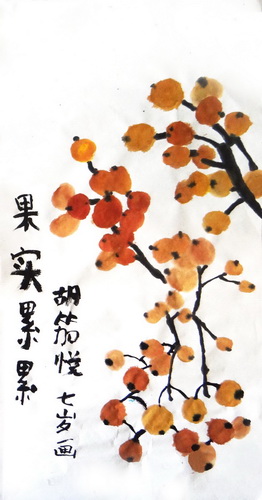 果实累累
胡筠悦 七岁画